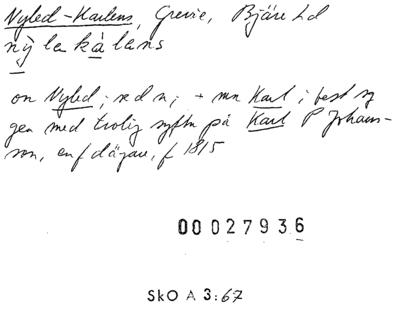 Nyled-Karlens, Grevie, Bjäre hd
nỳ la kà láns
on Nyled; se d n; + mn Karl i best sg
gen med trolig syftn på Karl P Johans-
son, en f d ägare, f 1815
00027936
SkO A 3:67